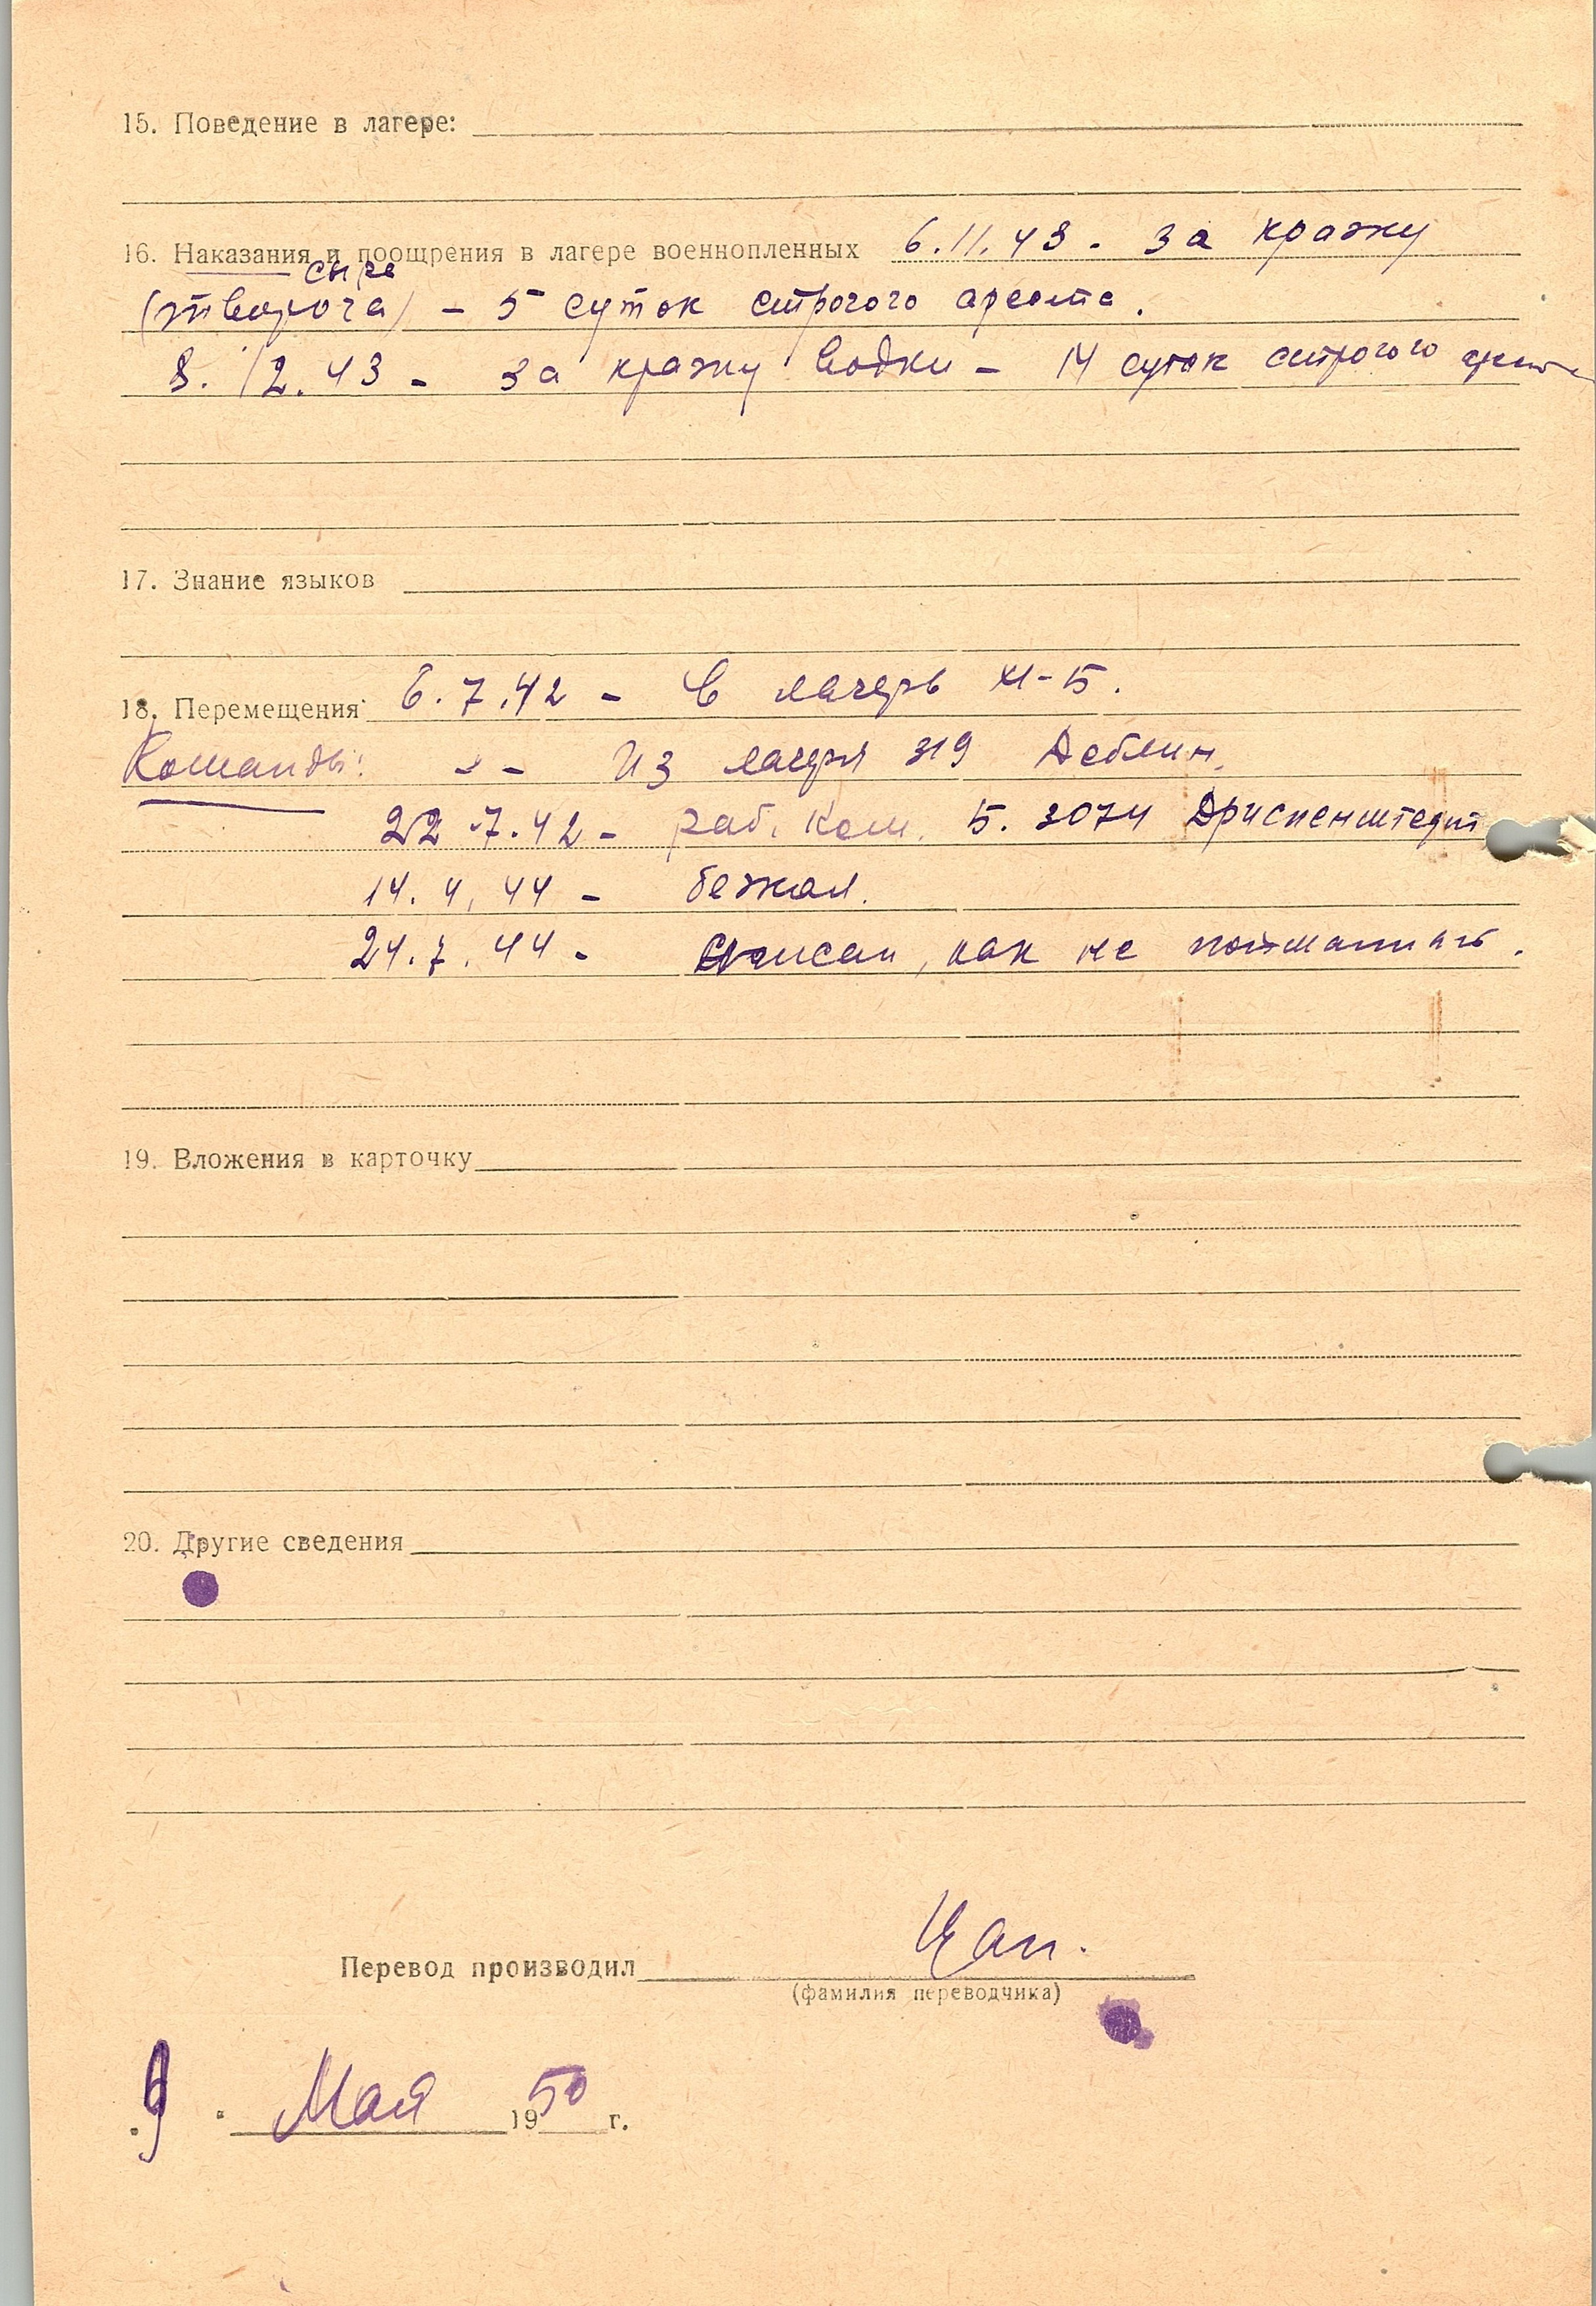 15. Поведение в лагере:
16. Наказания и поощрения в лагере военнопленных 6.11.43. за кражу
сыра
(творога) – 5 суток строгого ареста.
8. 12. 43 – за кражу водки – 14 суток строгого ареста
17. Знание языков
18. Перемещения: 6.7.42 – в лагерь XI-Б.
Команды: – – Из лагеря 319 Деблин.
22.7.42 – раб. ком. 5. 3074
14. 4. 44 – бежал.
24.7.44 – списан, как не пойманный.
19. Вложения в карточку
20. Другие сведения
Перевод производил
(фамилия переводчика)
"9" Мая 1950 г.